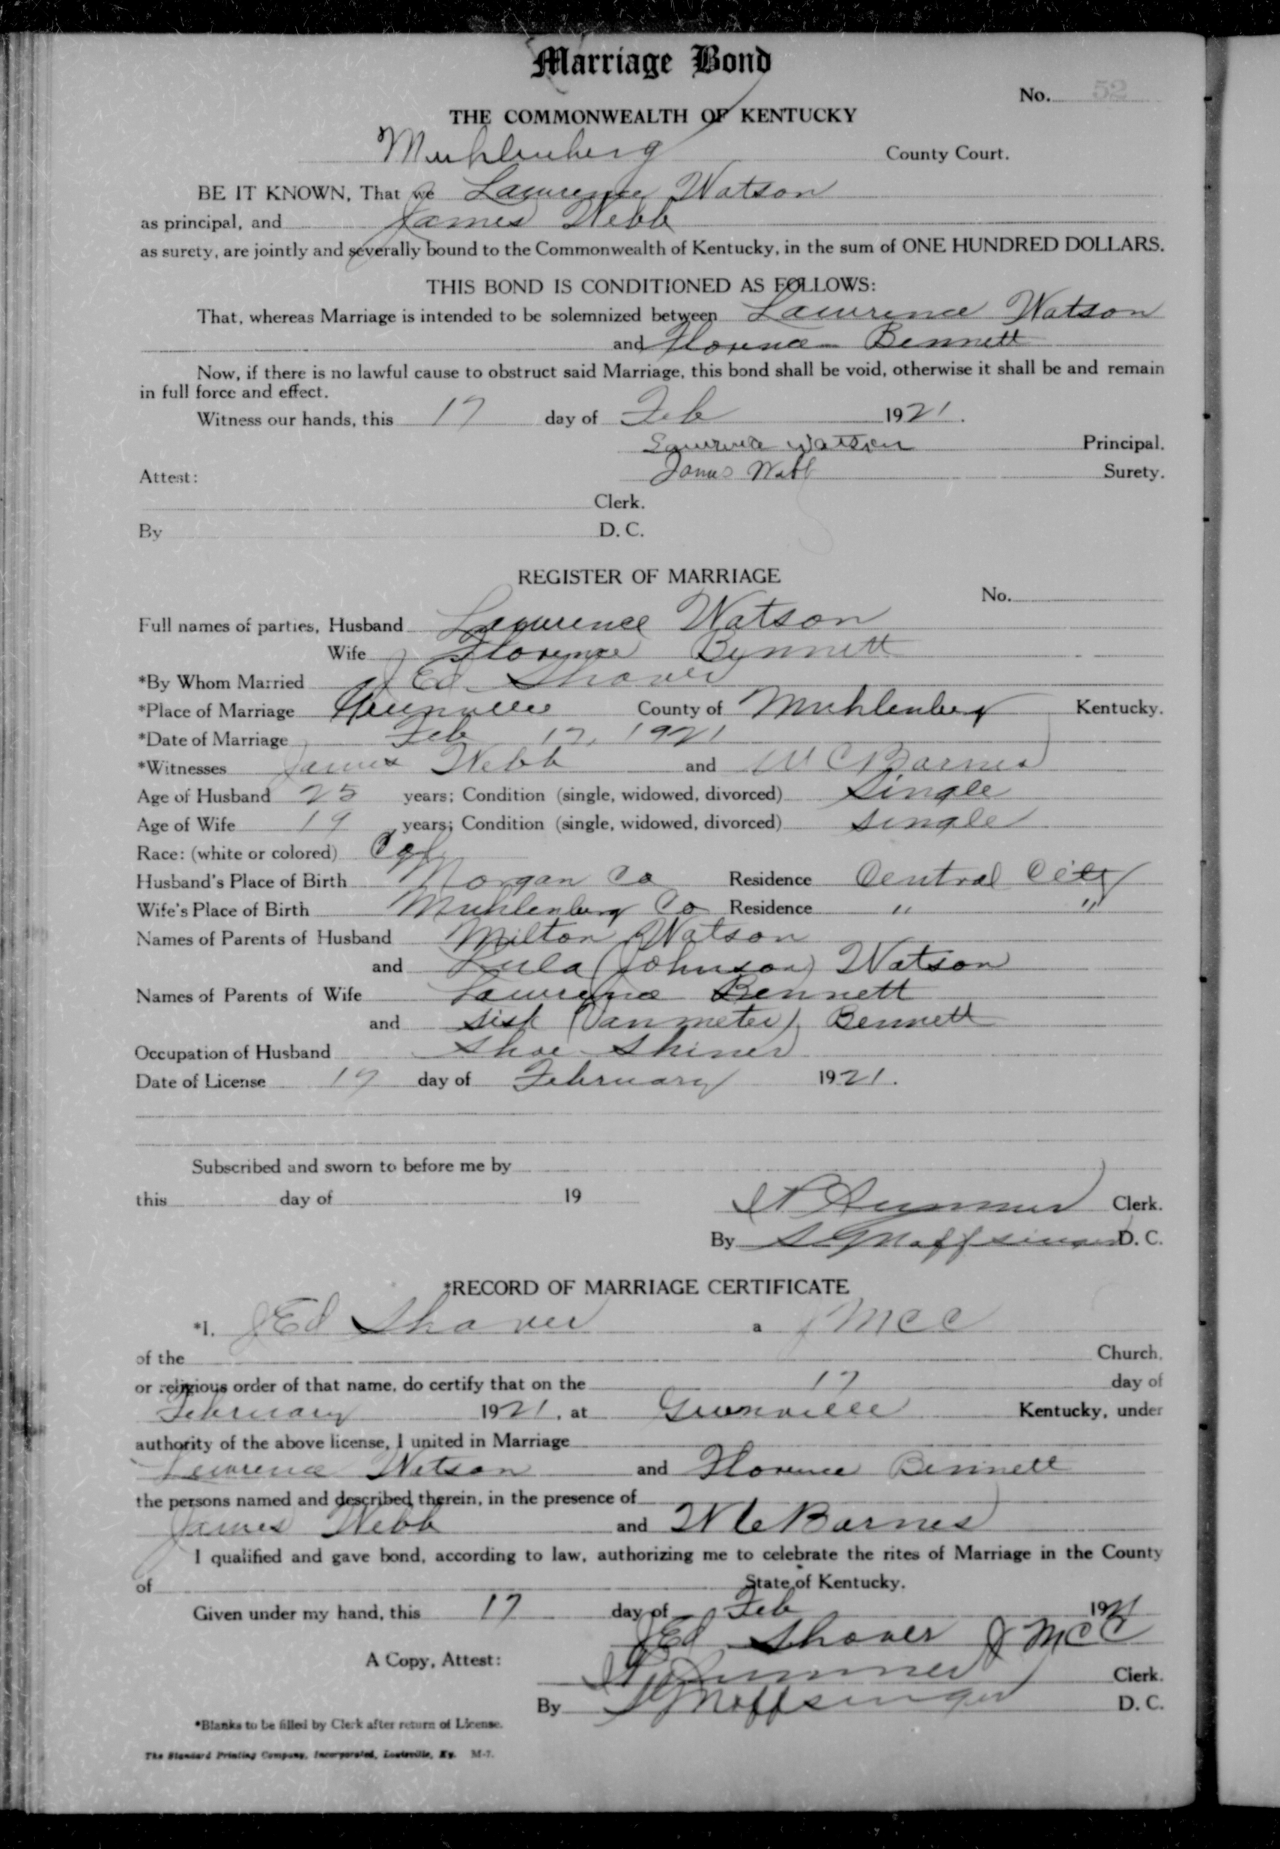 Marriage Bond
No. 52
THE COMMONWEALTH OF KENTUCKY
Muhlenberg County Court.
BE IT KNOWN, That we Lawrence Watson
as principal, and James Webb
as surety, are jointly and severally bound to the Commonwealth of Kentucky, in the sum of ONE HUNDRED DOLLARS.
THIS BOND IS CONDITIONED AS FOLLOWS:
That, whereas Marriage is intended to be solemnized between Lawrence Watson
and Florence Bennett
Now, if there is no lawful cause to obstruct said Marriage, this bond shall be void, otherwise it shall be and remain
in full force and effect.
Witness our hands, this 17 day of Feb 1921.
Lawrence Watson Principal.
Attest: James Webb Surety.
Clerk.
By D. C.
REGISTER OF MARRIAGE
No.
Full names of parties, Husband Lawrence Watson
Wife Florence Bennett
*By Whom Married J Ed Shaver
*Place of Marriage Greenville County of Muhlenberg Kentucky.
*Date of Marriage Feb 17, 1921
*Witnesses James Webb and W C Barnes
Age of Husband 25 years; Condition (single, widowed, divorced) Single
Age of Wife 19 years; Condition (single, widowed, divorced) single
Race: (white or colored) Col
Husband's Place of Birth Morgan Co Residence Central City
Wife's Place of Birth Muhlenberg Co Residence " "
Names of Parents of Husband Milton Watson
and Lula (Johnson) Watson
Names of Parents of Wife Lawrence Bennett
and Sisk (Vanmeter) Bennett
Occupation of Husband Shoe Shiner
Date of License 17 day of February 1921.
Subscribed and sworn to before me by
this day of 19 Clerk.
By D. C.
*RECORD OF MARRIAGE CERTIFICATE
*I, J Ed Shaver a J M C C
of the Church,
or religious order of that name, do certify that on the 17 day of
February 1921, at Greenville Kentucky, under
authority of the above license, I united in Marriage
Lawrence Watson and Florence Bennett
the persons named and described therein, in the presence of
James Webb and W C Barnes
I qualified and gave bond, according to law, authorizing me to celebrate the rites of Marriage in the County
of State of Kentucky.
Given under my hand, this 17 day of Feb 1921
J Ed Shaver J M C C
A Copy, Attest: Clerk.
By D. C.
*Blanks to be filled by Clerk after return of License.
The Standard Printing Company, Incorporated, Louisville, Ky. M-7.